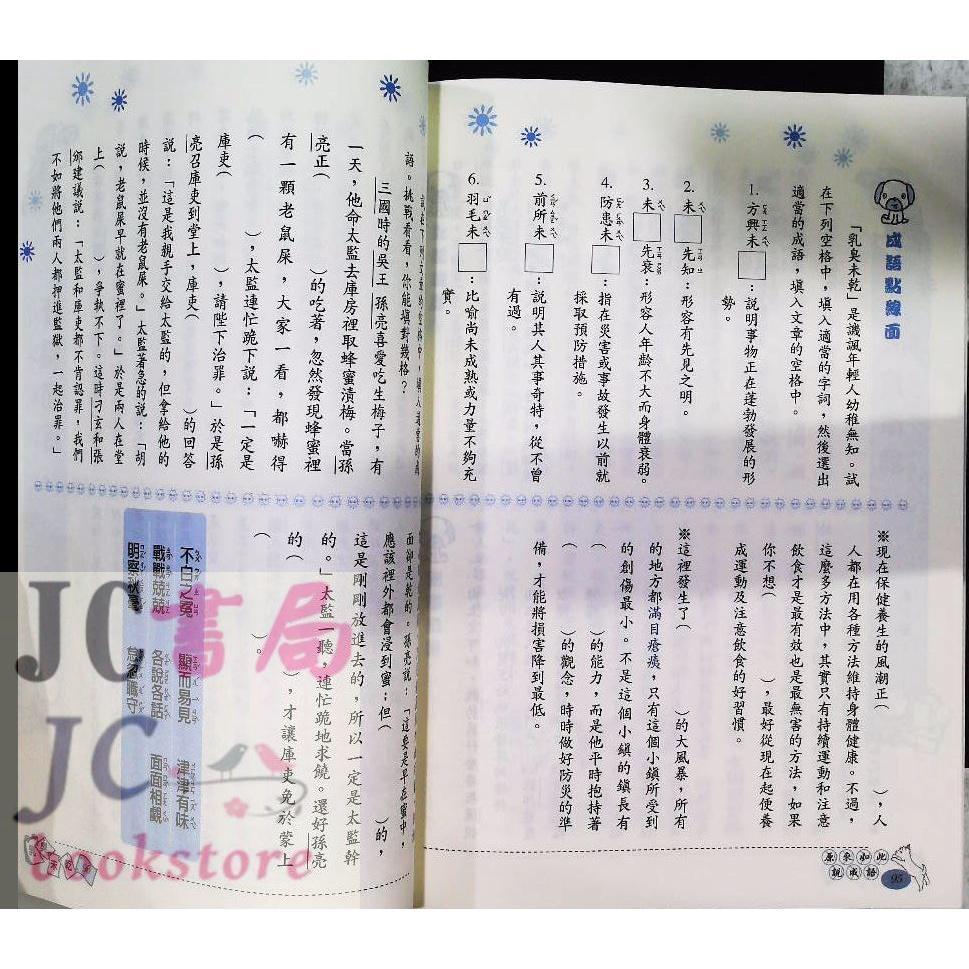 成語點線面
「乳臭未乾」是譏諷年輕人幼稚無知。試
在下列空格中,填入適當的字詞,然後選出
適當的成語,填入文章的空格中。
1. 方興未□:說明事物正在蓬勃發展的形
勢。
2. 未□先知:形容有先見之明。
3. 未□先衰:形容人年齡不大而身體衰弱。
4. 防患未□:指在災害或事故發生以前就
採取預防措施。
5. 前所未□:說明其人其事奇特,從不曾
有過。
6. 羽毛未□:比喻尚未成熟或力量不夠充
實。
※現在保健養生的風潮正( ),人
人都在用各種方法維持身體健康。不過,
這麼多方法中,其實只有持續運動和注意
飲食才是最有效也是最無害的方法,如果
你不想( ),最好從現在起便養
成運動及注意飲食的好習慣。
※這裡發生了( )的大風暴,所有
的地方都滿目瘡痍,只有這個小鎮所受到
的創傷最小。不是這個小鎮的鎮長有
( )的能力,而是他平時抱持著
( )的觀念,時時做好防災的準
備,才能將損害降到最低。
原來如此
說成語
95
語。挑戰看看,你能填對幾格?
三國時的吳王孫亮喜愛吃生梅子,有
一天,他命太監去庫房裡取蜂蜜漬梅。當孫
亮正( )的吃著,忽然發現蜂蜜裡
有一顆老鼠屎,大家一看,都嚇得
( ),太監連忙跪下說:「一定是
庫吏( ),請陛下治罪。」於是孫
亮召庫吏到堂上,庫吏( )的回答
說:「這是我親手交給太監的,但拿給他的
時候,並沒有老鼠屎。」太監著急的說:「胡
說,老鼠屎早就在蜜裡了。」於是兩人在堂
上( ),爭執不下。這時刁玄和張
邠建議說:「太監和庫吏都不肯認罪,我們
不如將他們兩人都押進監獄,一起治罪。」
面卻是乾的。孫亮說:「這要是早在蜜中,
應該裡外都會浸到蜜;但( )的,
這是剛剛放進去的,所以一定是太監幹
的。」太監一聽,連忙跪地求饒。還好孫亮
的( ),才讓庫吏免於蒙上
( )。
不白之冤 顯而易見 津津有味
戰戰兢兢 各說各話 面面相覷
明察秋毫 怠忽職守
JC書局
JC
bookstore